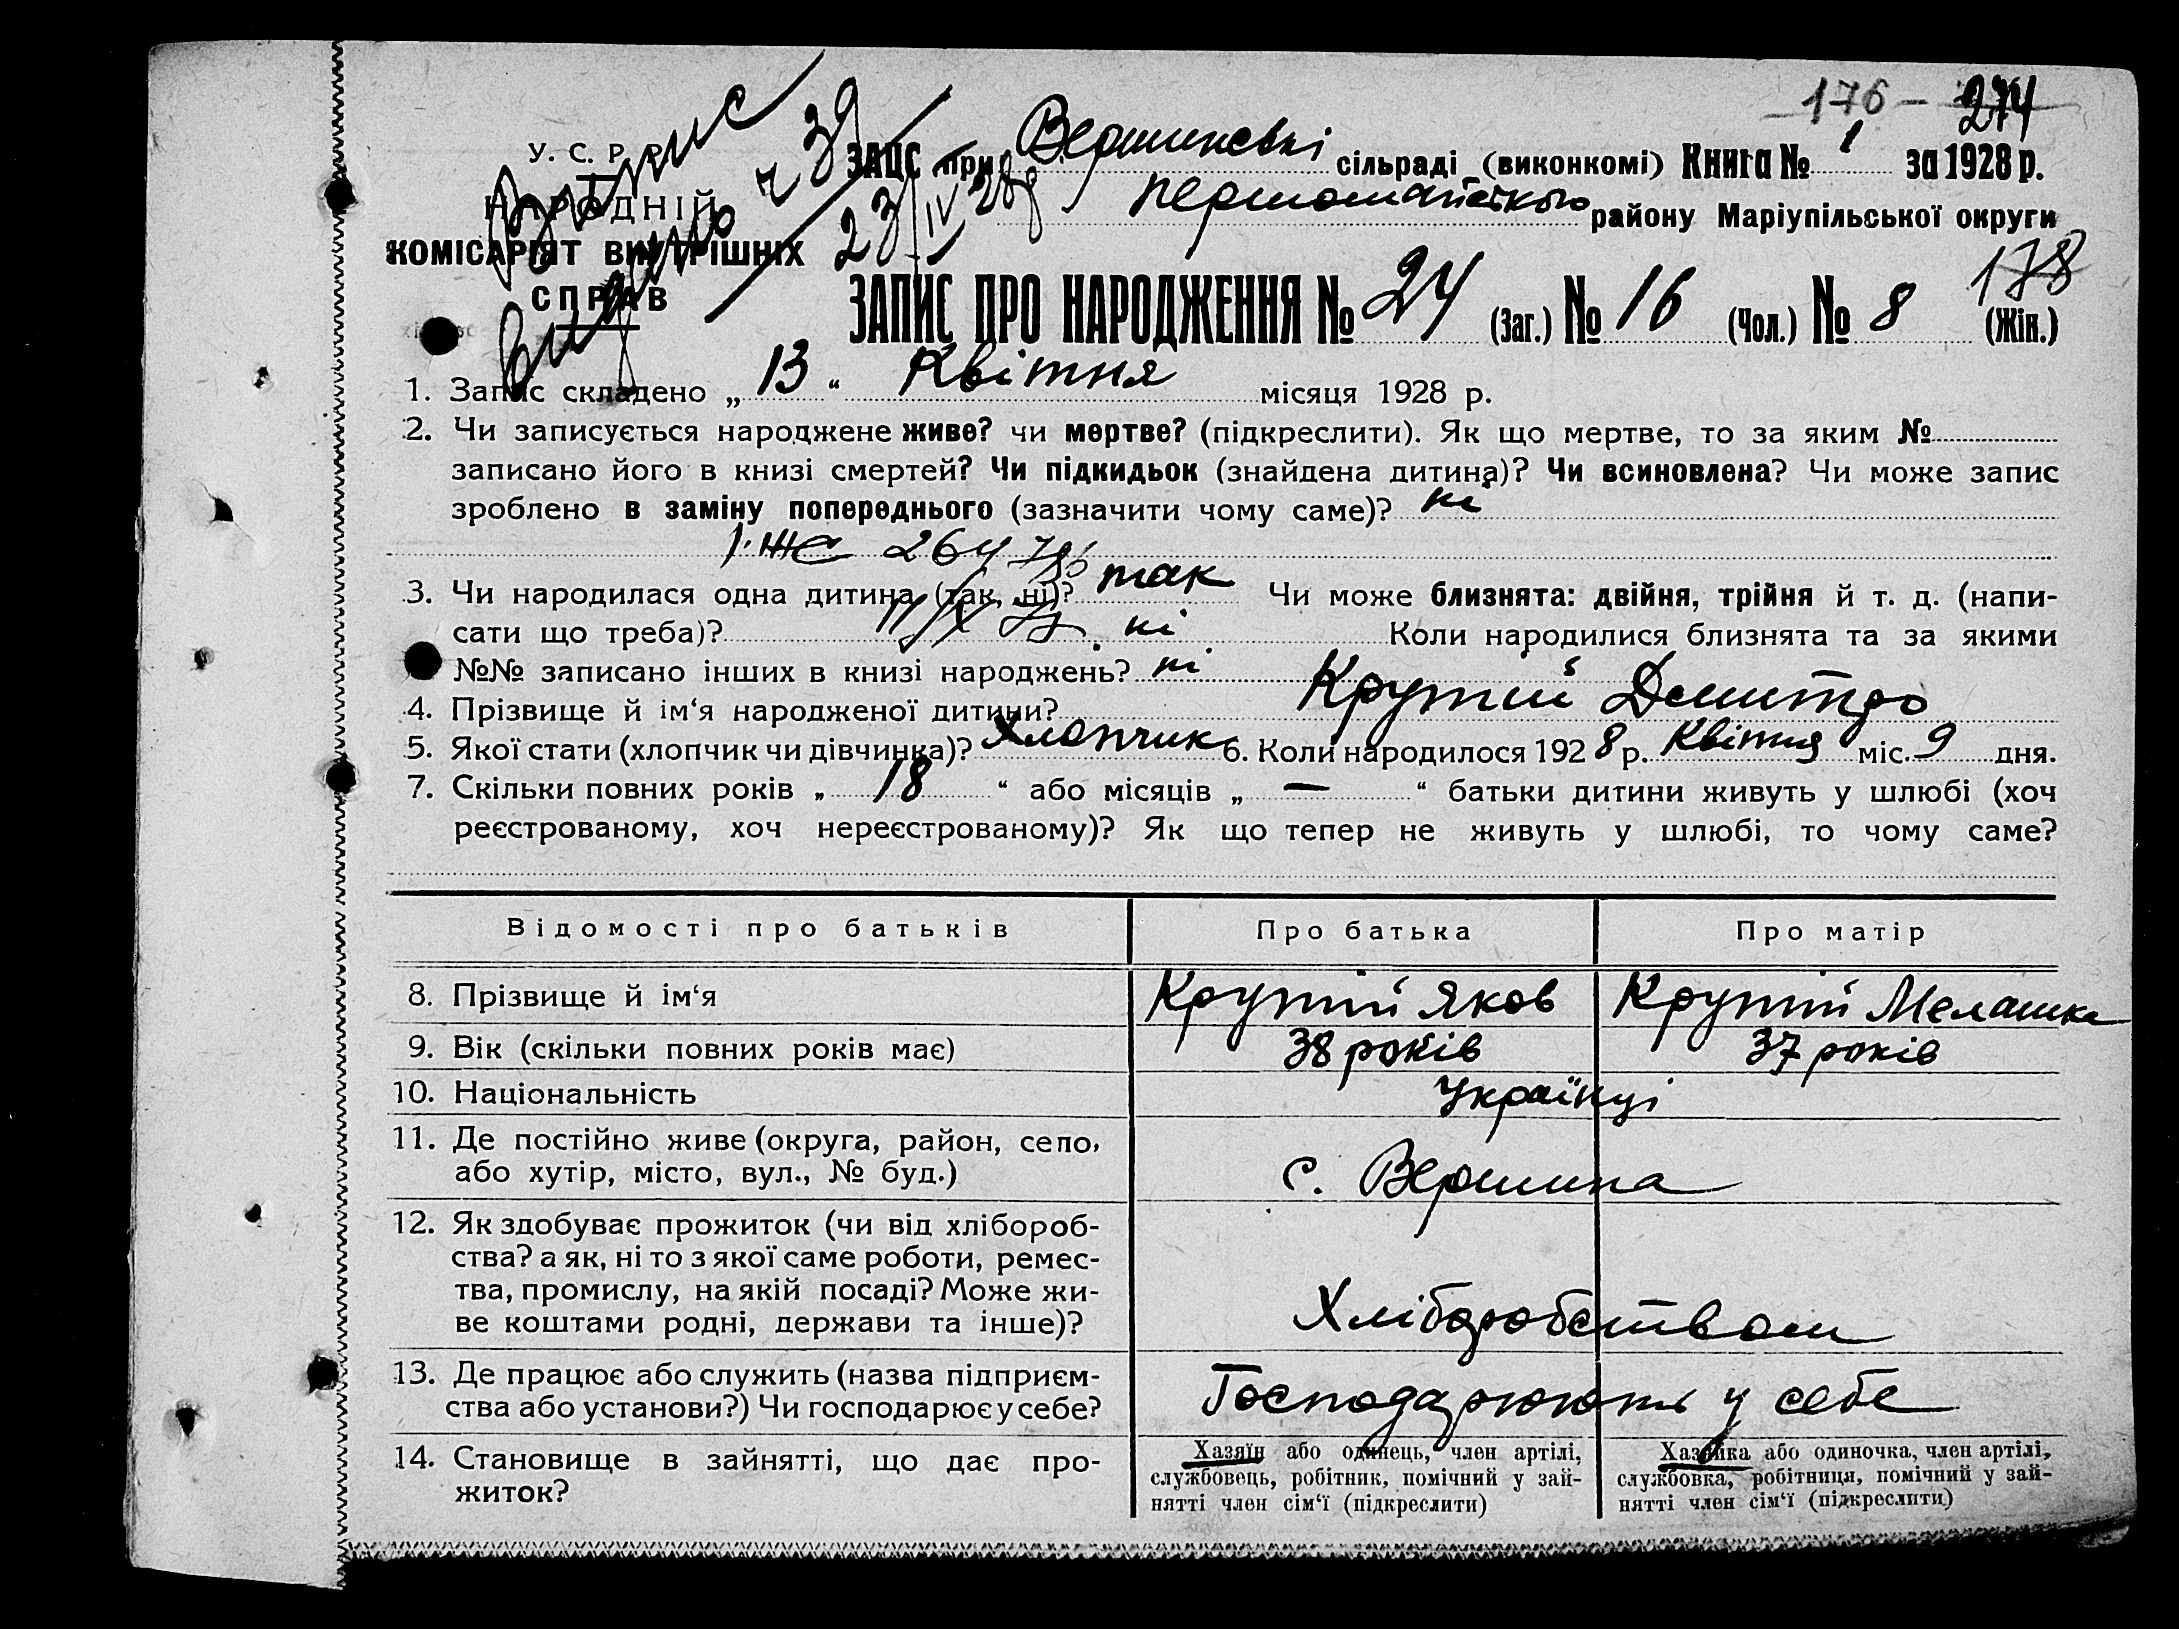 176 – 274
У. С. Р. Р.
НАРОДНІЙ
КОМІСАРІЯТ ВНУТРІШНІХ
СПРАВ
Витпис
Видано ч 39
23/IV 28р
ЗАЦС при Вершинскі сільраді (виконкомі) Книга № 1 за 1928 р.
Першомайського району Маріупільської округи
178
ЗАПИС ПРО НАРОДЖЕННЯ № 24 (Заг.) № 16 (Чол.) № 8 (Жін.)
1. Запис складено „ 13 “ Квітня місяця 1928 р.
2. Чи записується народжене живе? чи мертве? (підкреслити). Як що мертве, то за яким №
записано його в книзі смертей? Чи підкидьок (знайдена дитина)? Чи всиновлена? Чи може запис
зроблено в заміну попереднього (зазначити чому саме)? ні
3. Чи народилася одна дитина (так, ні)? так Чи може близнята: двійня, трійня й т. д. (напи-
сати що треба)? ні Коли народилися близнята та за якими
№№ записано інших в книзі народжень? ні
4. Прізвище й ім‘я народженої дитини? Крутій Дмитро
5. Якої стати (хлопчик чи дівчинка)? Хлопчик 6. Коли народилося 1928 р. Квітня міс. 9 дня.
7. Скільки повних років „ 18 “ або місяців „ — “ батьки дитини живуть у шлюбі (хоч
реєстрованому, хоч нереєстрованому)? Як що тепер не живуть у шлюбі, то чому саме?
Відомості про батьків Про батька Про матір
8. Прізвище й ім‘я Крутій Яков Крутій Мелашка
9. Вік (скільки повних років має) 38 років 37 років
10. Національність Українці
11. Де постійно живе (округа, район, село,
або хутір, місто, вул., № буд.) с. Вершина
12. Як здобуває прожиток (чи від хлібороб-
ства? а як, ні то з якої саме роботи, ремес-
тва, промислу, на якій посаді? Може жи-
ве коштами родні, держави та інше)? Хліборобством
13. Де працює або служить (назва підприєм-
ства або установи?) Чи господарює у себе? Господарюють у себе
14. Становище в зайнятті, що дає про-
житок?
Хазяїн або одинець, член артілі,
службовець, робітник, помічний у зай-
нятті член сім‘ї (підкреслити)
Хазяйка або одиночка, член артілі,
службовка, робітниця, помічний у зай-
нятті член сім‘ї (підкреслити)